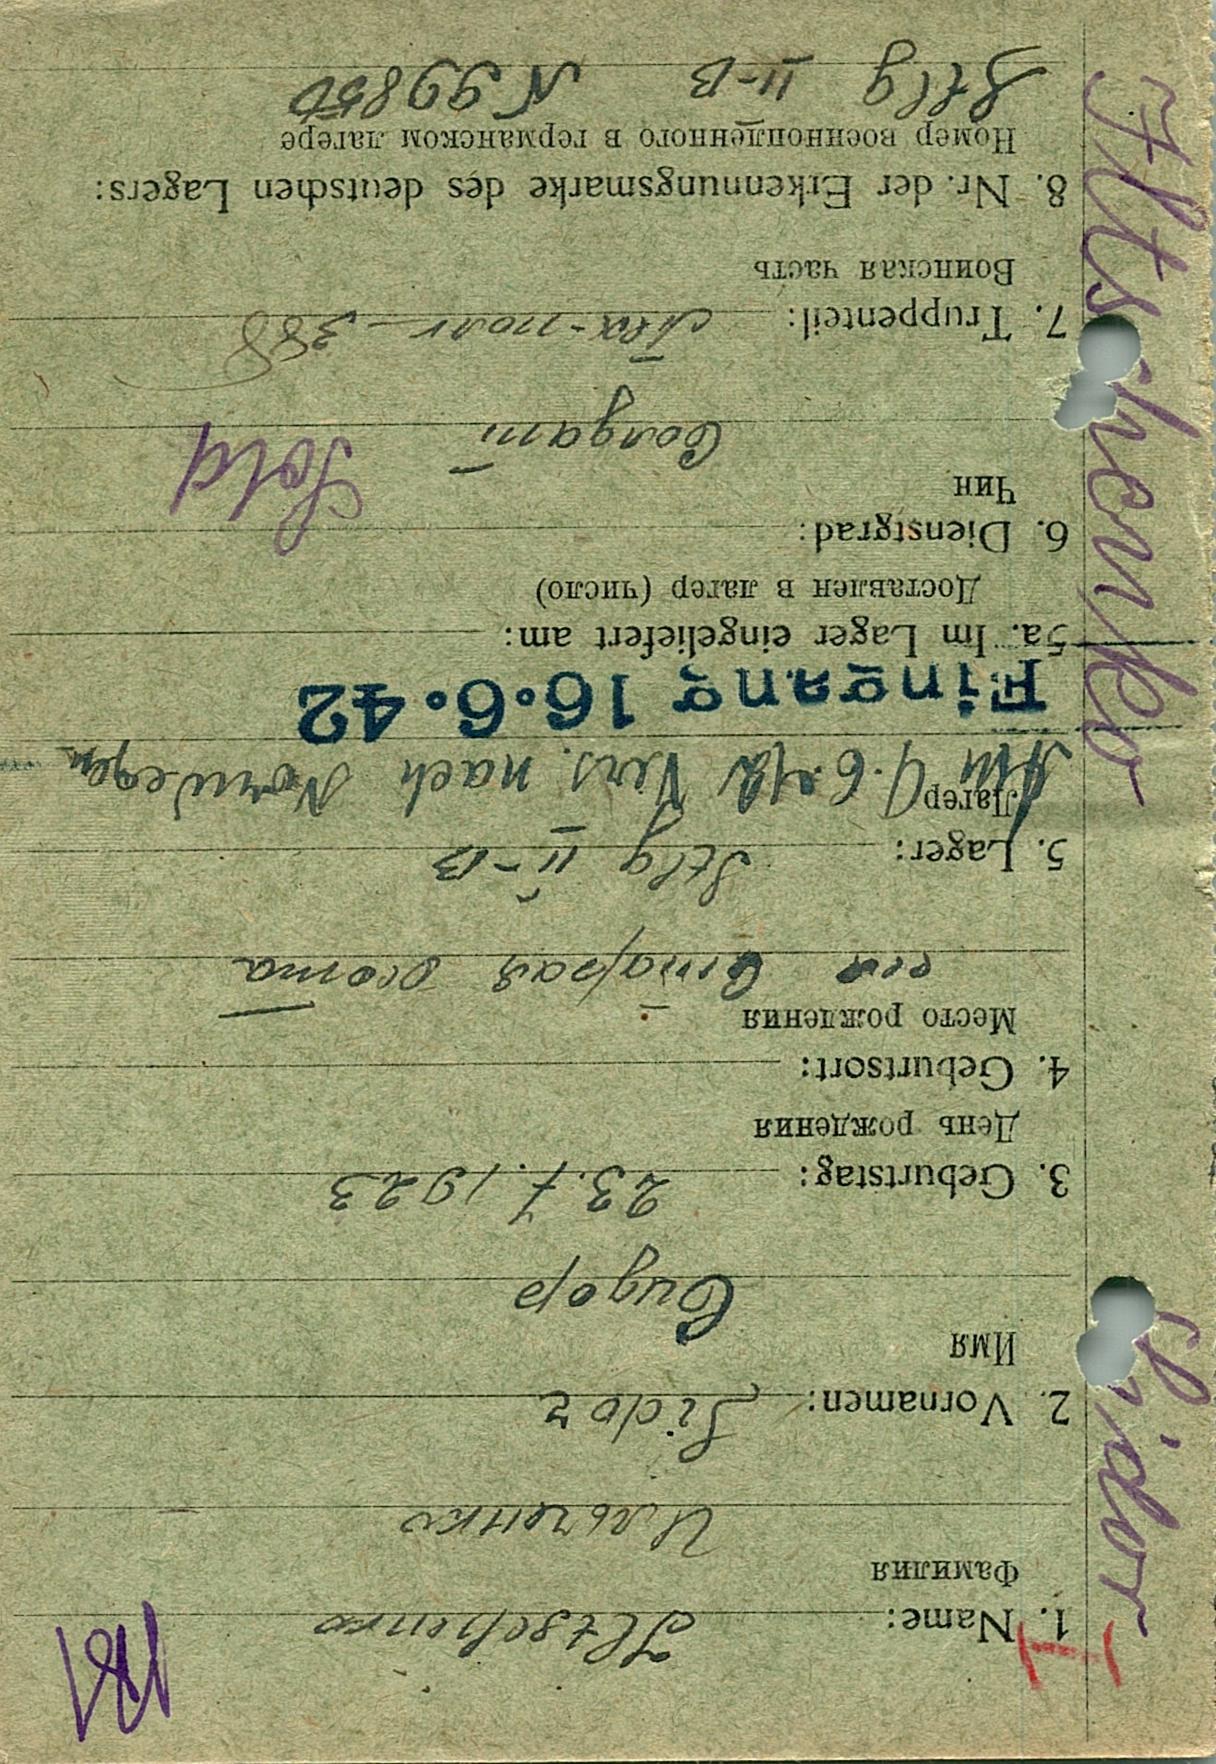 181
1. Name: Iltschenko
Фамилия
Ильченко
2. Vornamen: Sidor
Имя
Сидор
3. Geburtstag: 23.7.1923
День рождения
4. Geburtsort:
Место рождения
Старая
5. Lager: Stlg II-B
Лагер
Am 9.6.42 Vers. nach Norwegen
Eingang 16.6.42
5a. Im Lager eingeliefert am:
Доставлен в лагер (число)
6. Dienstgrad: Sold
Чин
Солдат
7. Truppenteil: полк 388
Воинская часть
8. Nr. der Erkennungsmarke des deutschen Lagers:
Номер военнопленного в германском лагере
Stlg II-B N 99850
Iltschenko Sidor